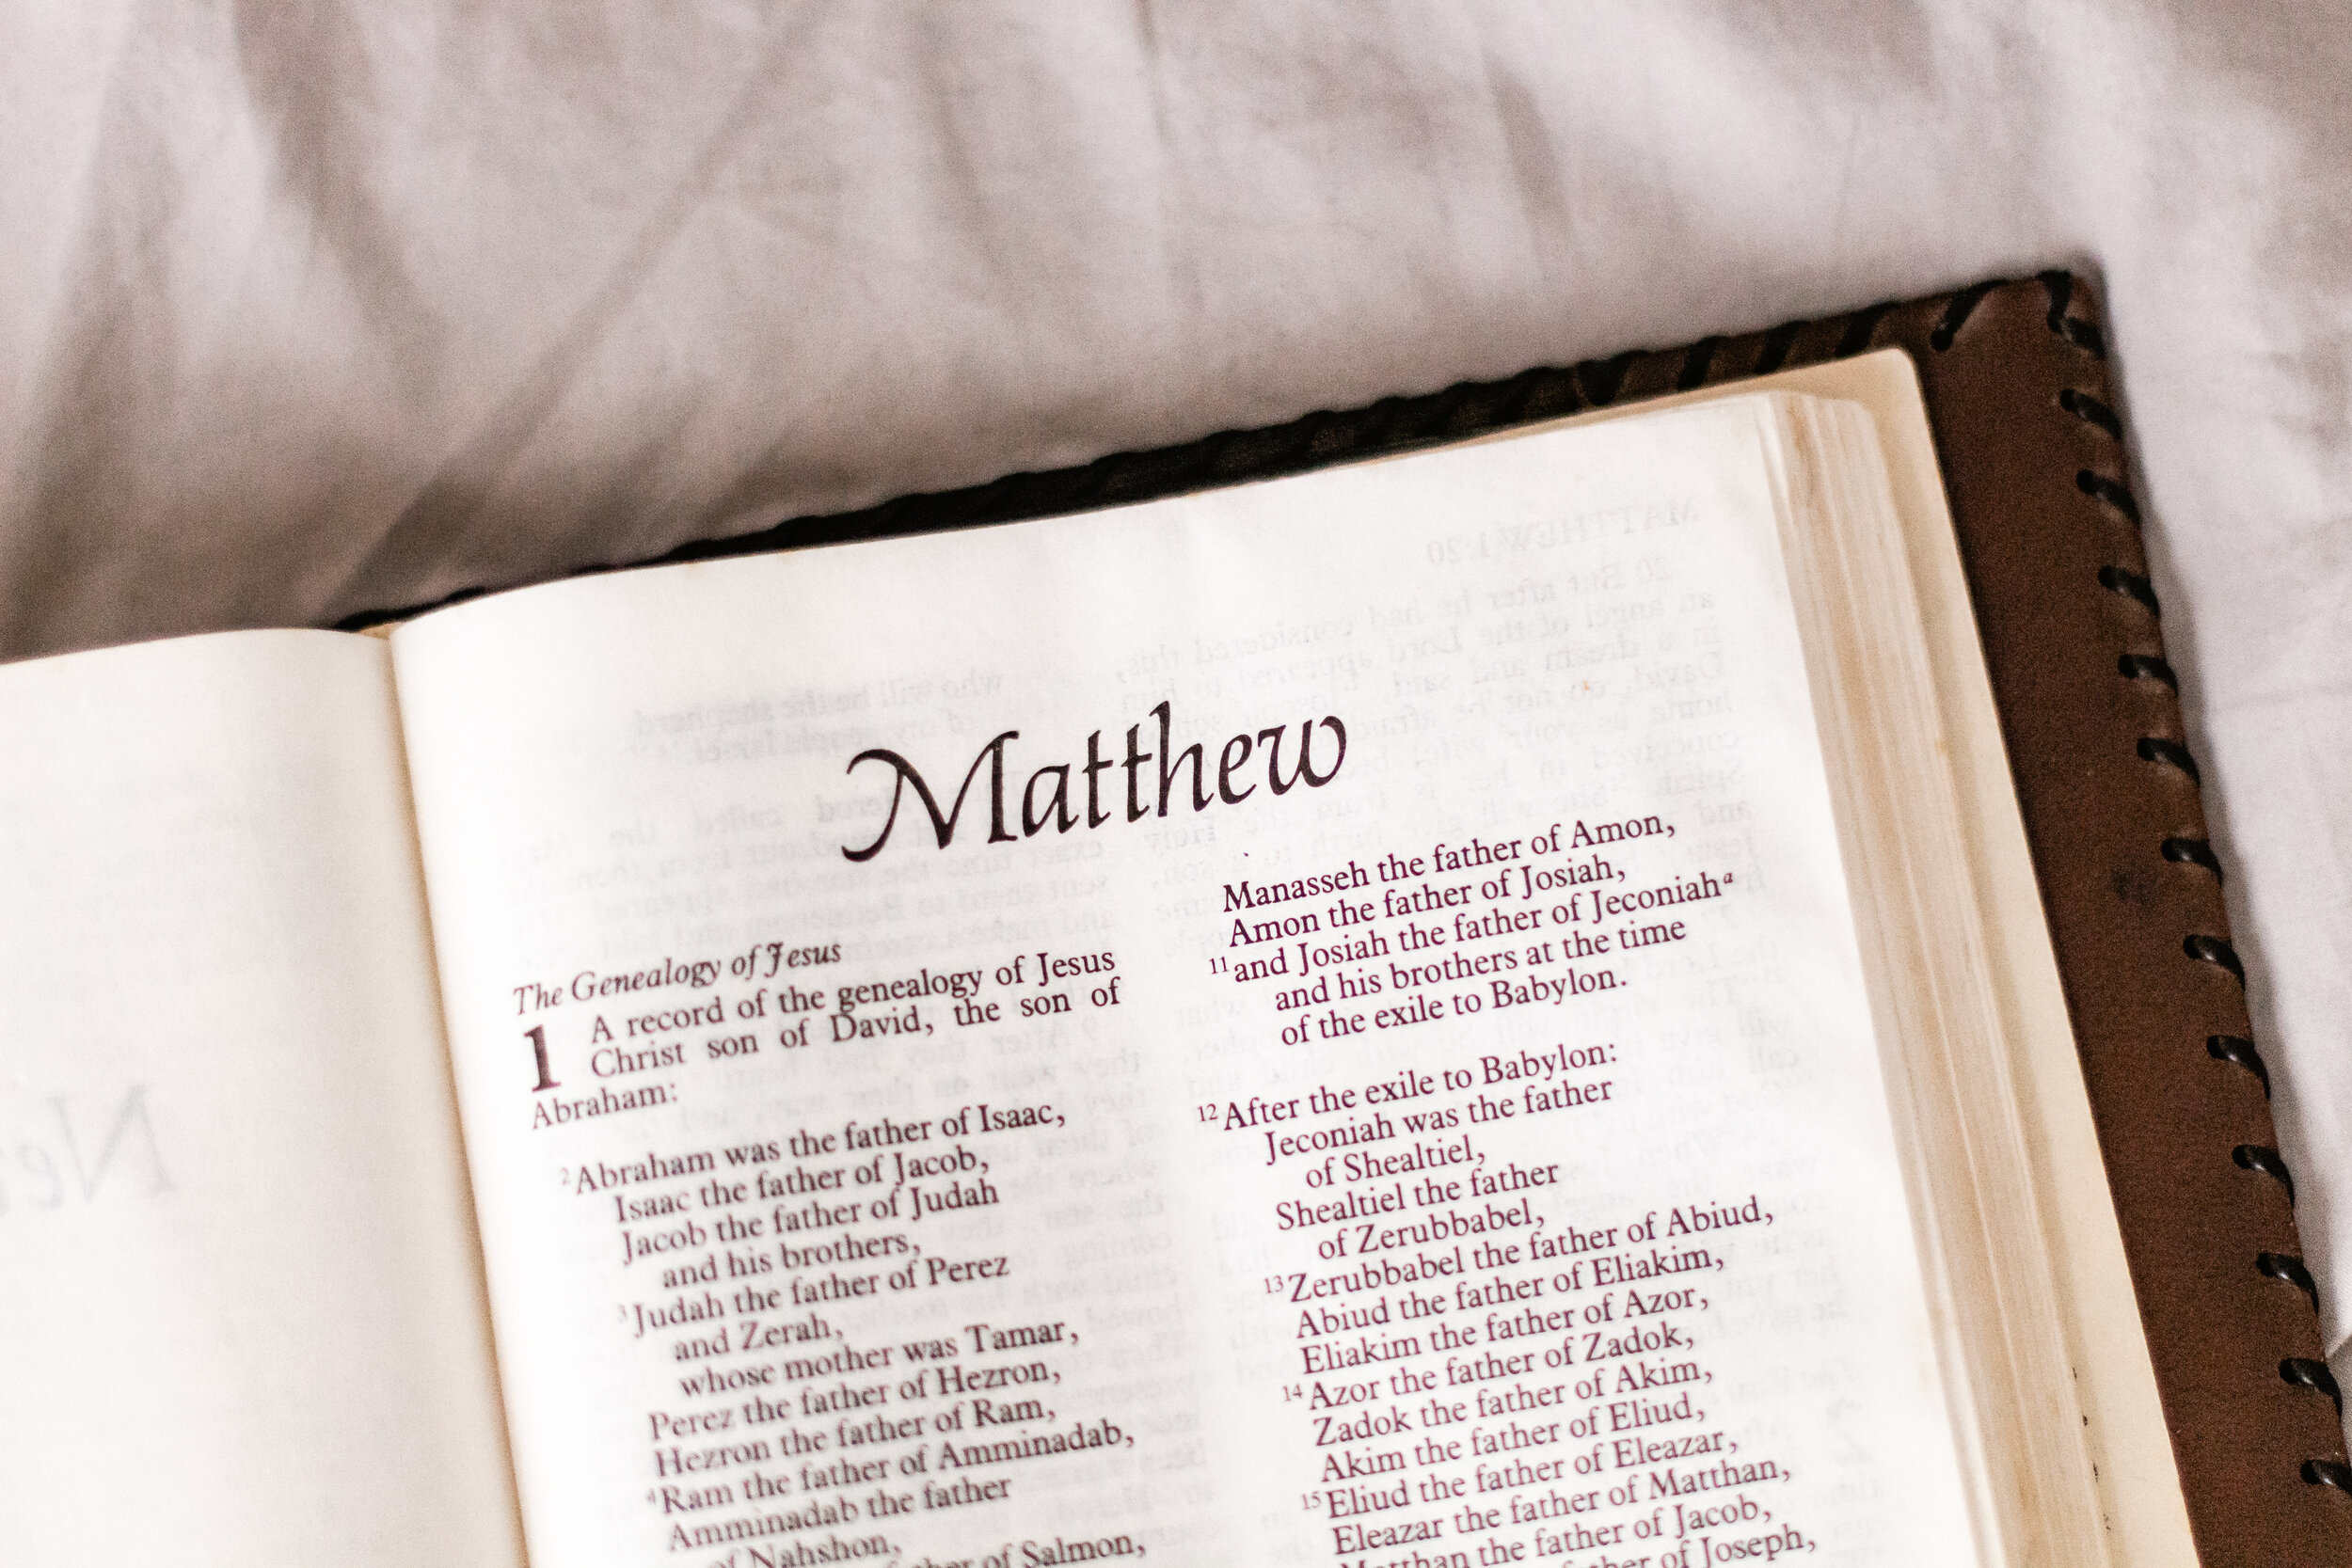 Matthew
The Genealogy of Jesus
1 A record of the genealogy of Jesus
Christ son of David, the son of
Abraham:
2 Abraham was the father of Isaac,
Isaac the father of Jacob,
Jacob the father of Judah
and his brothers,
3 Judah the father of Perez
and Zerah,
whose mother was Tamar,
Perez the father of Hezron,
Hezron the father of Ram,
4 Ram the father of Amminadab,
Amminadab the father
of Nahshon,
of Salmon,
Manasseh the father of Amon,
Amon the father of Josiah,
11 and Josiah the father of Jeconiah a
and his brothers at the time
of the exile to Babylon.
12 After the exile to Babylon:
Jeconiah was the father
of Shealtiel,
Shealtiel the father
of Zerubbabel,
13 Zerubbabel the father of Abiud,
Abiud the father of Eliakim,
Eliakim the father of Azor,
14 Azor the father of Zadok,
Zadok the father of Akim,
Akim the father of Eliud,
15 Eliud the father of Eleazar,
Eleazar the father of Matthan,
Matthan the father of Jacob,
father of Joseph,